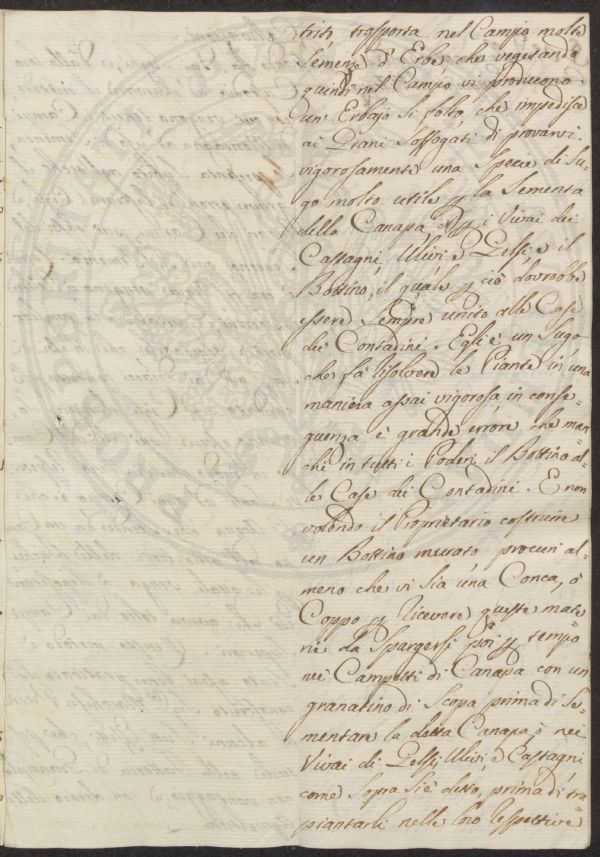 triti trasporta nel Campo molte
Semenze d'Erbe che vegetando
quindi nel Campo vi producono
un' Erbajo si folto, che impedisce
ai Grani soffogati di provarvi
vigorosamente una Specie di Su-
go molto utile p la Sementa
della Canapa, e p i Vivai dei
Castagni, Ulivi, e Gelsi, e il
Bottino, il quale p ciò dovrebbe
essere sempre unito alle Case
dei Contadini. Egli è un Sugo
che fà risolvere le Piante in una
maniera assai vigorosa in conse-
guenza è grande errore che man-
chi in tutti i Poderi il Bottino al-
le Case dei Contadini. E non
volendo il Proprietario costruire
un Bottino murato procuri al-
meno che vi sia una Conca, ò
Coppo p ricevere queste mate-
rie da Spargersi poi p tempo
nei Campetti di Canapa con un
granatino di Scopa prima di Se-
mentare la detta Canapa, ò nei
Vivai di Gelsi, Ulivi, e Castagni
come sopra si è detto, prima di tra-
piantarli nelle loro respettive